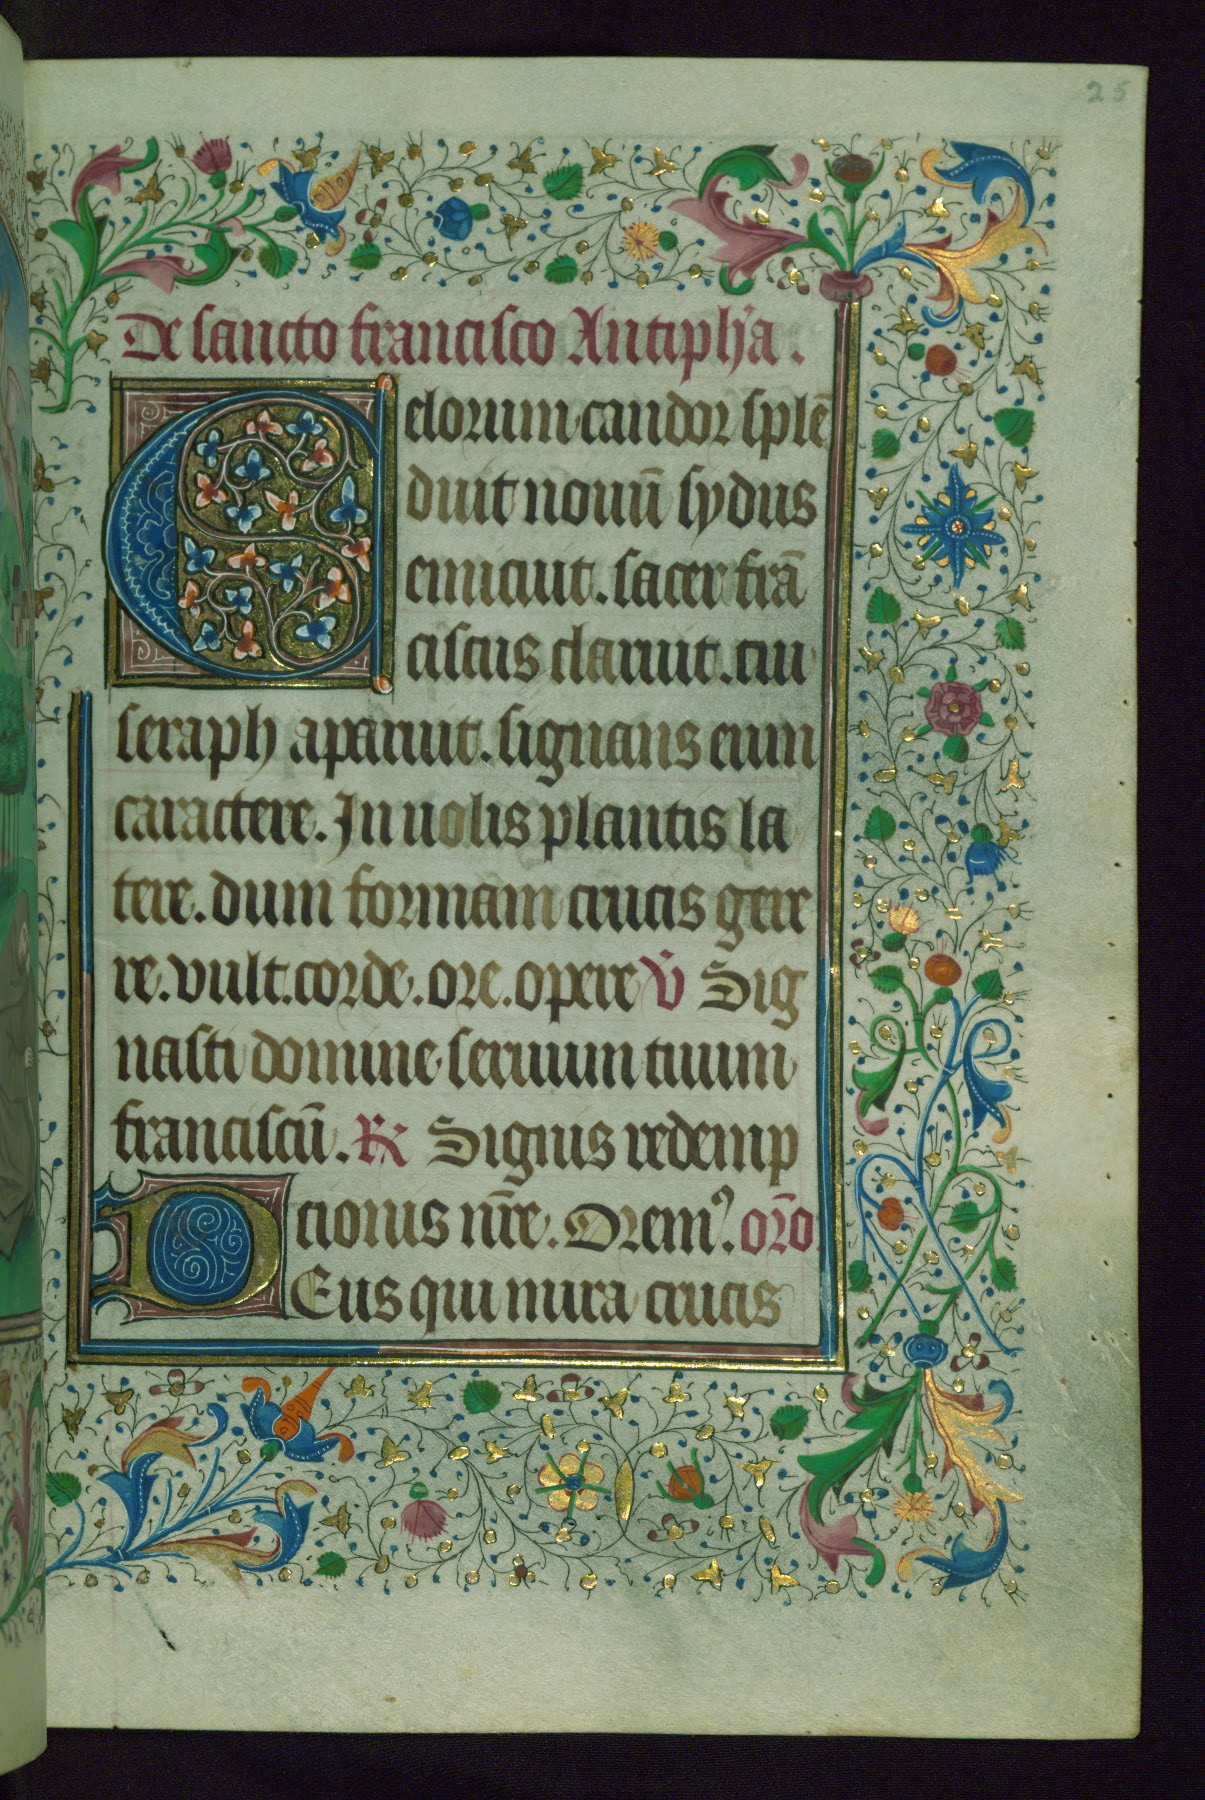 25
De sancto francisco Antiphˀa.
Celorum candor splē
duit nouū sydus
emicuit. sacer frā
ciscus claruit. cui
seraph aparuit. signans eum
caractere. In uolis plantis la
tere. dum formam crucis gere
re. vult. corde. ore. opere ℣ Sig
nasti domine seruum tuum
franciscū. ℟ Signis redemp
cionis nr̄e. Oremꝰ. or̄o.
DEus qui mira crucis